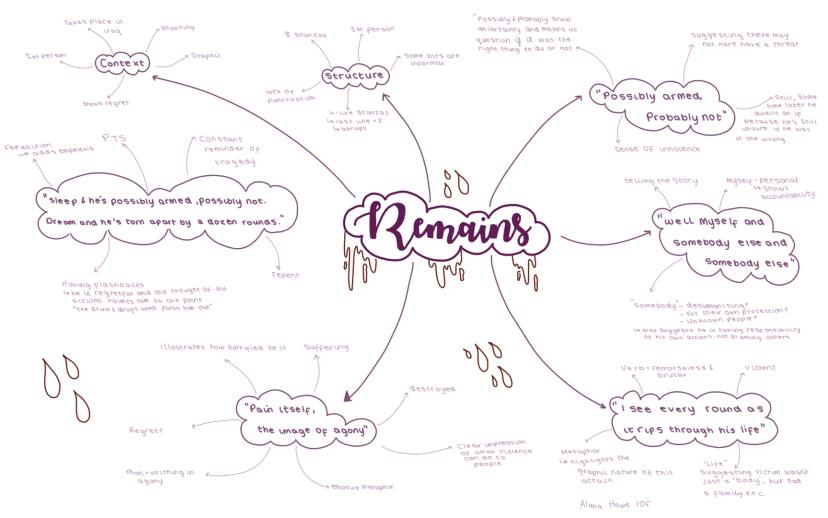 Takes place in
Iraq
Shooting
1st person
Context
Graphic
Shows regret
8 stanzas
1st person
Structure
Some bits are
informal
lots of
punctuation
4-line stanzas
↳ last line=2
↳ abrupt
"Possibly & Probably show
uncertainty and makes us
question if it was the
right thing to do or not
Suggesting there may
not have have a threat
"Possibly armed,
Probably not"
Still, some
time later he
dwells on it
because he's still
unsure if he was
in the wrong
Sense of innocence
repetition
↳ adds emphasis
PTS
Constant
reminder of
tragedy
"Sleep & he's possibly armed, possibly not.
Dream and he's torn apart by a dozen rounds."
Having flashbacks
↳ he is regretful and the thought of his
actions haunts him to the point
"the drink & drugs wont flush him out"
Repent
Remains
telling the story
Myself - personal
↳ shows
accountability
"well myself and
somebody else and
somebody else"
"Somebody" - dehumanising?
- For their own protection?
- Unknown people?
↳ also suggests he is taking responsibility
of his own actions, not blaming others
Illustrates how horrified he is
Suffering
"Pain itself,
the image of agony"
destroyed
Regret?
Clear impression
of what violence
can do to
people
Man - writhing in
agony
Emotive metaphor
Verb - remorseless &
brutal
Violent
"I see every round as
it rips through his life"
Metaphor
↳ highlights the
graphic nature of this
attack
"Life"
Suggesting victim wasn't
just a 'body', but had
a family e.t.c.
Alana Howe 10F